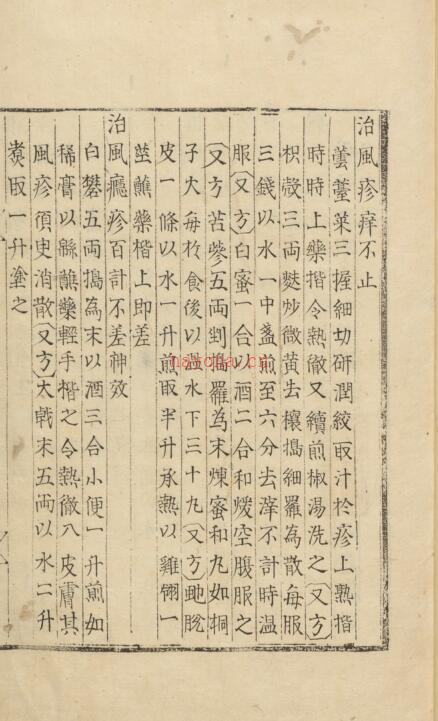 治風疹痒不止
蕓薹菜三握細切研潤絞取汁於疹上熟揩
時時上藥揩令熱徹又續煎椒湯洗之又方
枳殼三兩麩炒微黃去穰搗細羅為散每服
三錢以水一中盞煎至六分去滓不計時温
服又方白蜜一合以酒二合和煖空腹服之
又方苦參五兩剉搗羅為末煉蜜和丸如桐
子大每於食後以温水下三十九又方虵脫
皮一條以水一升煎取半升承熱以雞翎一
莖蘸藥揩上即差
治風癮疹百計不差神效
白礬五兩搗為末以酒三合小便一升煎如
稀膏以緜蘸藥輕手揩之令熱徹入皮膚其
風疹須臾消散又方大戟末五兩以水二升
煑取一升塗之